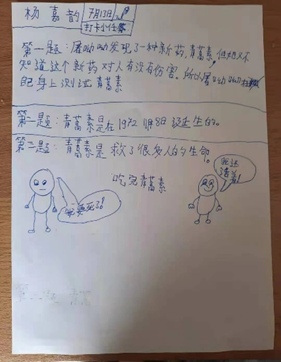 杨嘉韵 7月13日
打卡小任务
第一题：屠呦呦发现了一种新药,青蒿素,但她不
知道这个新药对人有没有伤害。所以屠呦呦在
自己身上测了青蒿素
第二题：青蒿素是在1972 诞生的。
第三题：青蒿素是救了很多人的生命。
我还
活着!
吃完青蒿素
我要死了!